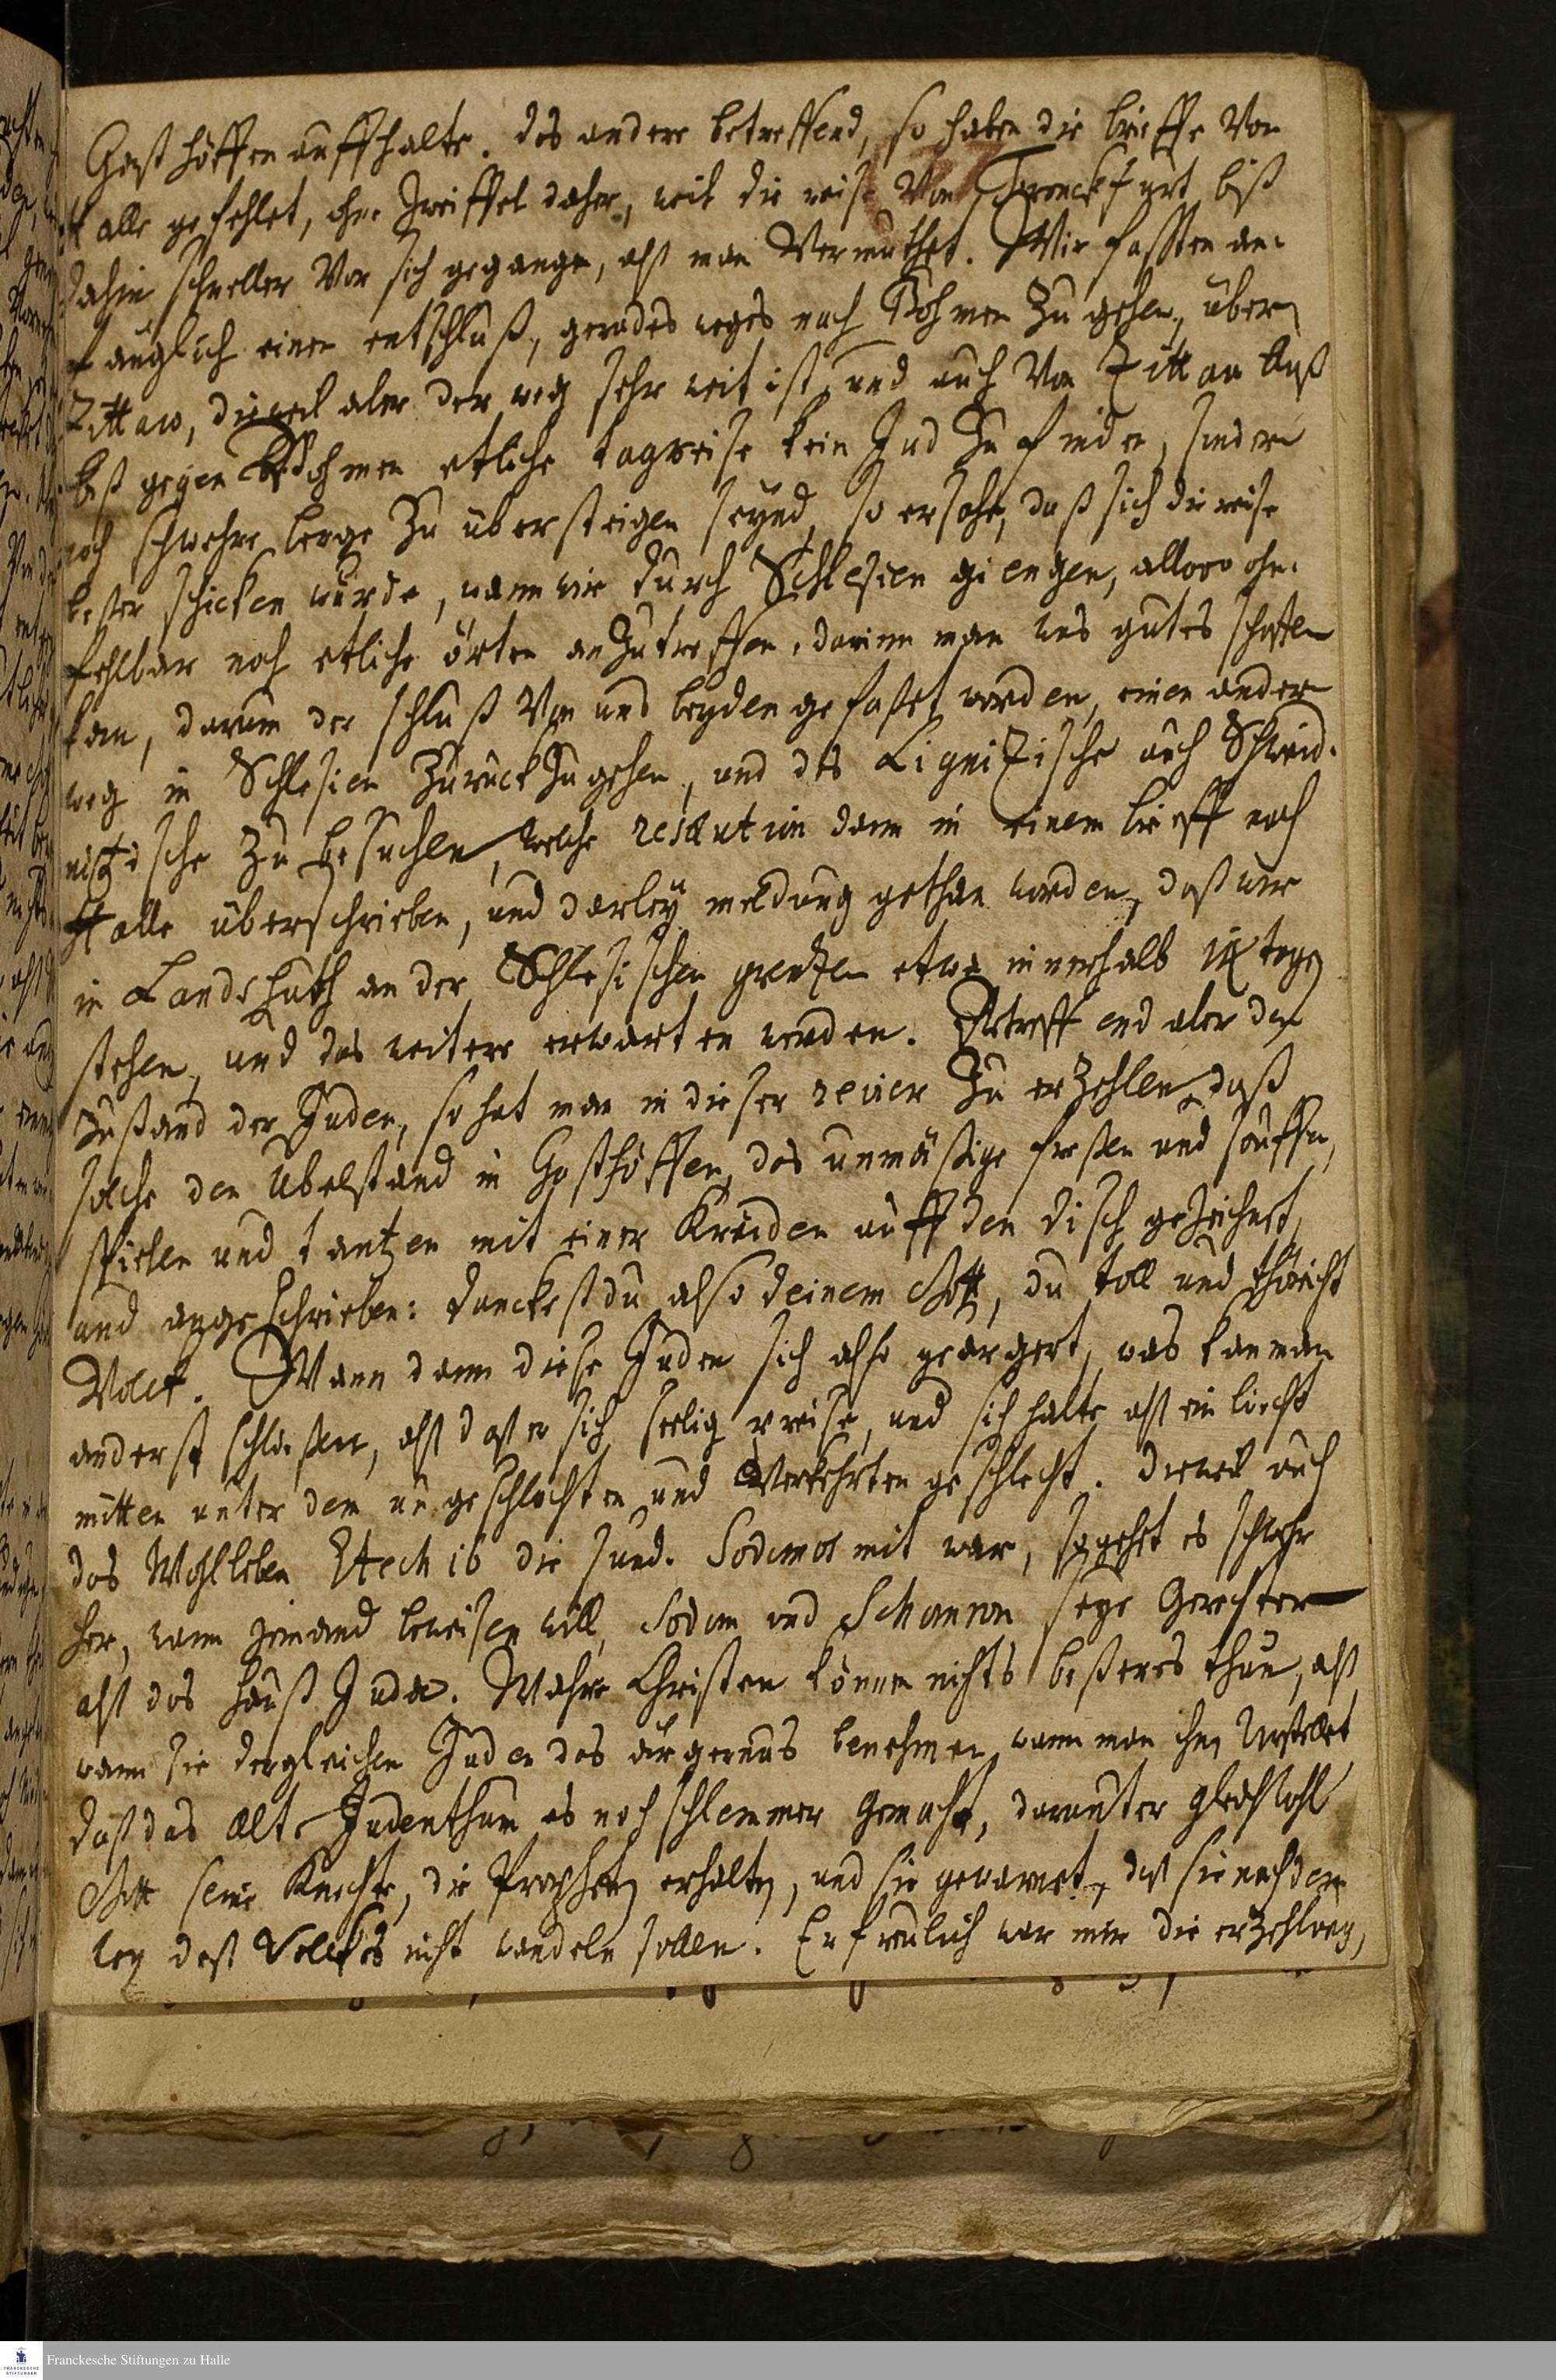 Gast höffen auffhalte. das andere betreffend, so haben die brieffe Von
Halle gefehlet, ohne Zweiffel daher, weil die reise Von Franckfurt biß
dahin schneller Vor sich gegangen, alß man Vermuthet. Wir fasten an-
fänglich einen entschluß, gerades weges nach Böhmen Zu gehen, über
Zittaw, dieweil aber der weg sehr weit ist, und auch Von Zittau auß
biß gegen Böhmen etliche tagreise kein Jud Zu finden, sondern
noch schwehre berge Zu übersteigen seynd, so ersahe, daß sich die reise
beßer schicken würde, wann wir durch Schlesien giengen, allwo ohn-
fehlbar noch etliche örter anZutreffen, darinn man was gutes schaffen
kan, darum der schluß Von uns beyden gefaßet worden, einen andern
weg in Schlesien Zurück Zu gehen, und das LigniZische auch Schweid-
nitzische Zu besuchen, welche resolution dann in einem brieff nach
Halle überschrieben, und darbey meldung gethan worden, daß wir
in Landshuth an der Schlesischen grentzen etwa innerhalb IX tagen
stehen, und das weitere erwarten werden. Betreffend aber den
Zustand der Juden, so hat man in dieser revier Zu erZehlen, daß
solche den übelstand in Gasthöffen, das unmäßige freßen und sauffen,
spielen und tantzen mit einer Kreiden auff den disch geZeichnet,
und angeschrieben: danckestdu also deinem Gott, du toll und thöricht
Volck. Wann dann diese Juden sich also geärgert, was kan man
anderst schließen, alß daß er sich seelig preise, und sich halte alß ein liecht
mitten unter dem ungeschlachten und Verkehrten geschlecht. Dieweil auch
das Wohlleben Ezech 16 die sünd Sodomos mit war, so gehet es schwehr
her, wann jemand beweisen will, Sodom und Schomron seye Gerechter
alß das hauß Juda. Wahre Christen können nichts beßeres thun, alß
wann sie dergleichen Juden das ärgernus benehmen, wann man ihnen Vorstellet
daß das alte Judenthum es noch schlimmer gemacht, darunter gleichwohl
Gott seine Knechte, die Propheten erhalten, und sie gewarnet, daß sie nach dem
weg deß Volckes nicht wandeln sollen. Erfreulich war mir die erzehlung,
Franckesche Stiftungen zu Halle